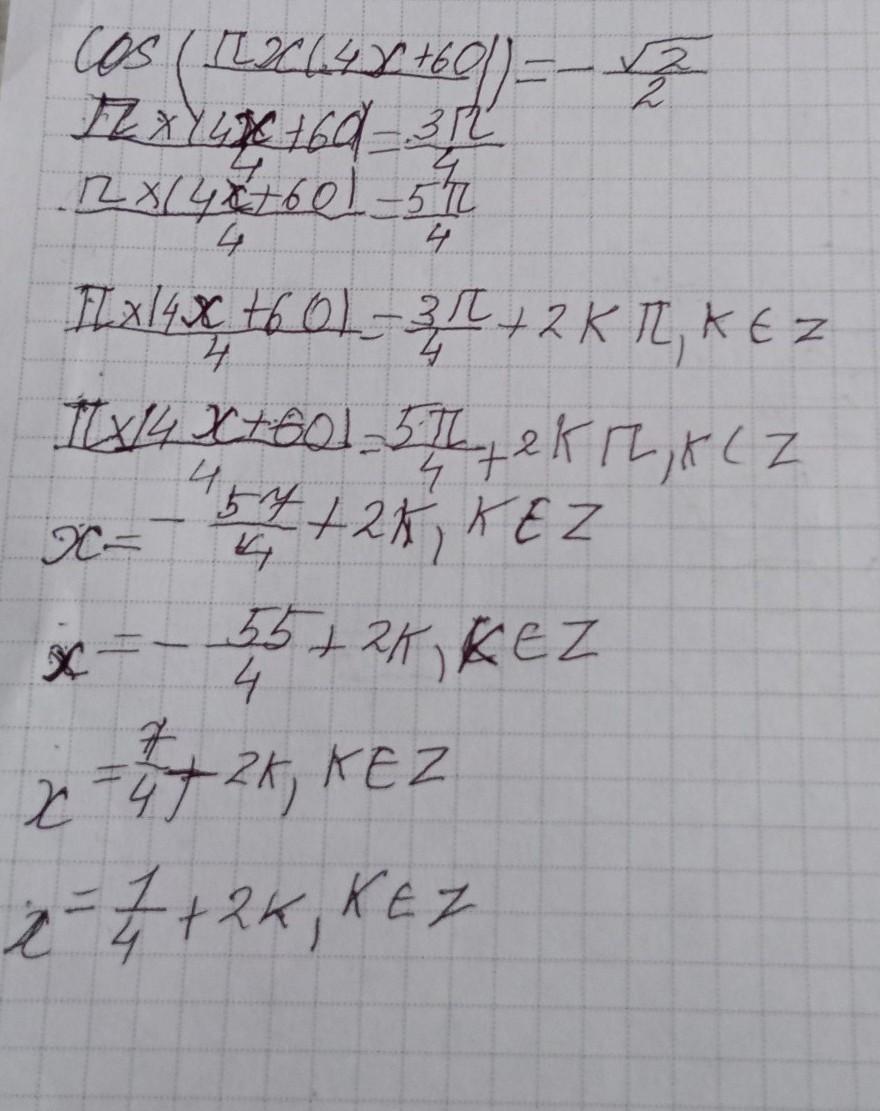 cos(πx(4x+60)/4) = -√2/2
πx(4x+60)/4 = 3π/4
πx(4x+60)/4 = 5π/4
πx(4x+60)/4 = 3π/4 + 2Kπ, K∈Z
πx(4x+60)/4 = 5π/4 + 2Kπ, K∈Z
x = -57/4 + 2K, K∈Z
x = -55/4 + 2K, K∈Z
x = 7/4 + 2K, K∈Z
x = 1/4 + 2K, K∈Z